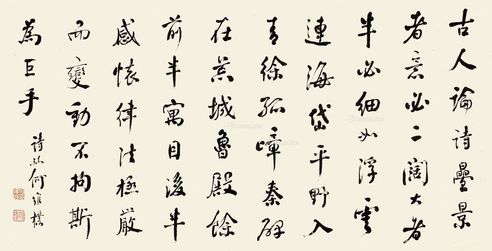 古人論詩疊景
者意必二闊大者
半必細如浮雲
連海岱平野入
青徐孤嶂秦碑
在荒城魯殿餘
前半寓目後半
感懷律法極嚴
而變動不拘斯
為巨手
詩孫何維樸